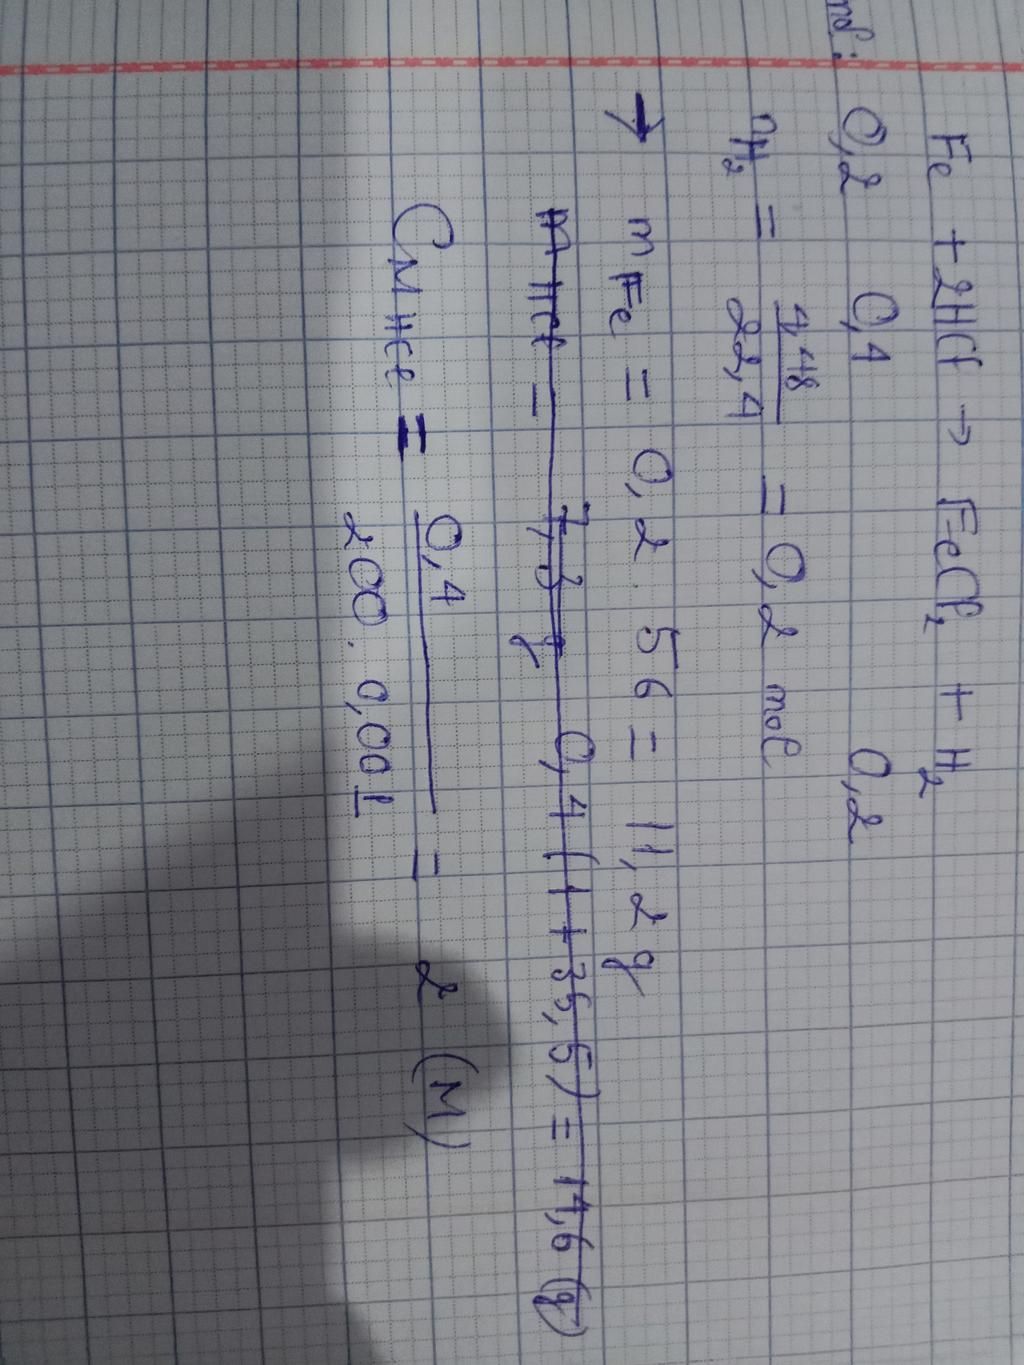 Fe + 2HCl → FeCl₂ + H₂
mol: 0,2 0,4 0,2
nH₂ = 4,48 / 22,4 = 0,2 mol
→ mFe = 0,2 . 56 = 11,2 g
m HCl = 7,3 g 0,4 (1 + 35,5) = 14,6 (g)
CM HCl = 0,4 / 200 . 0,001 = 2 (M)